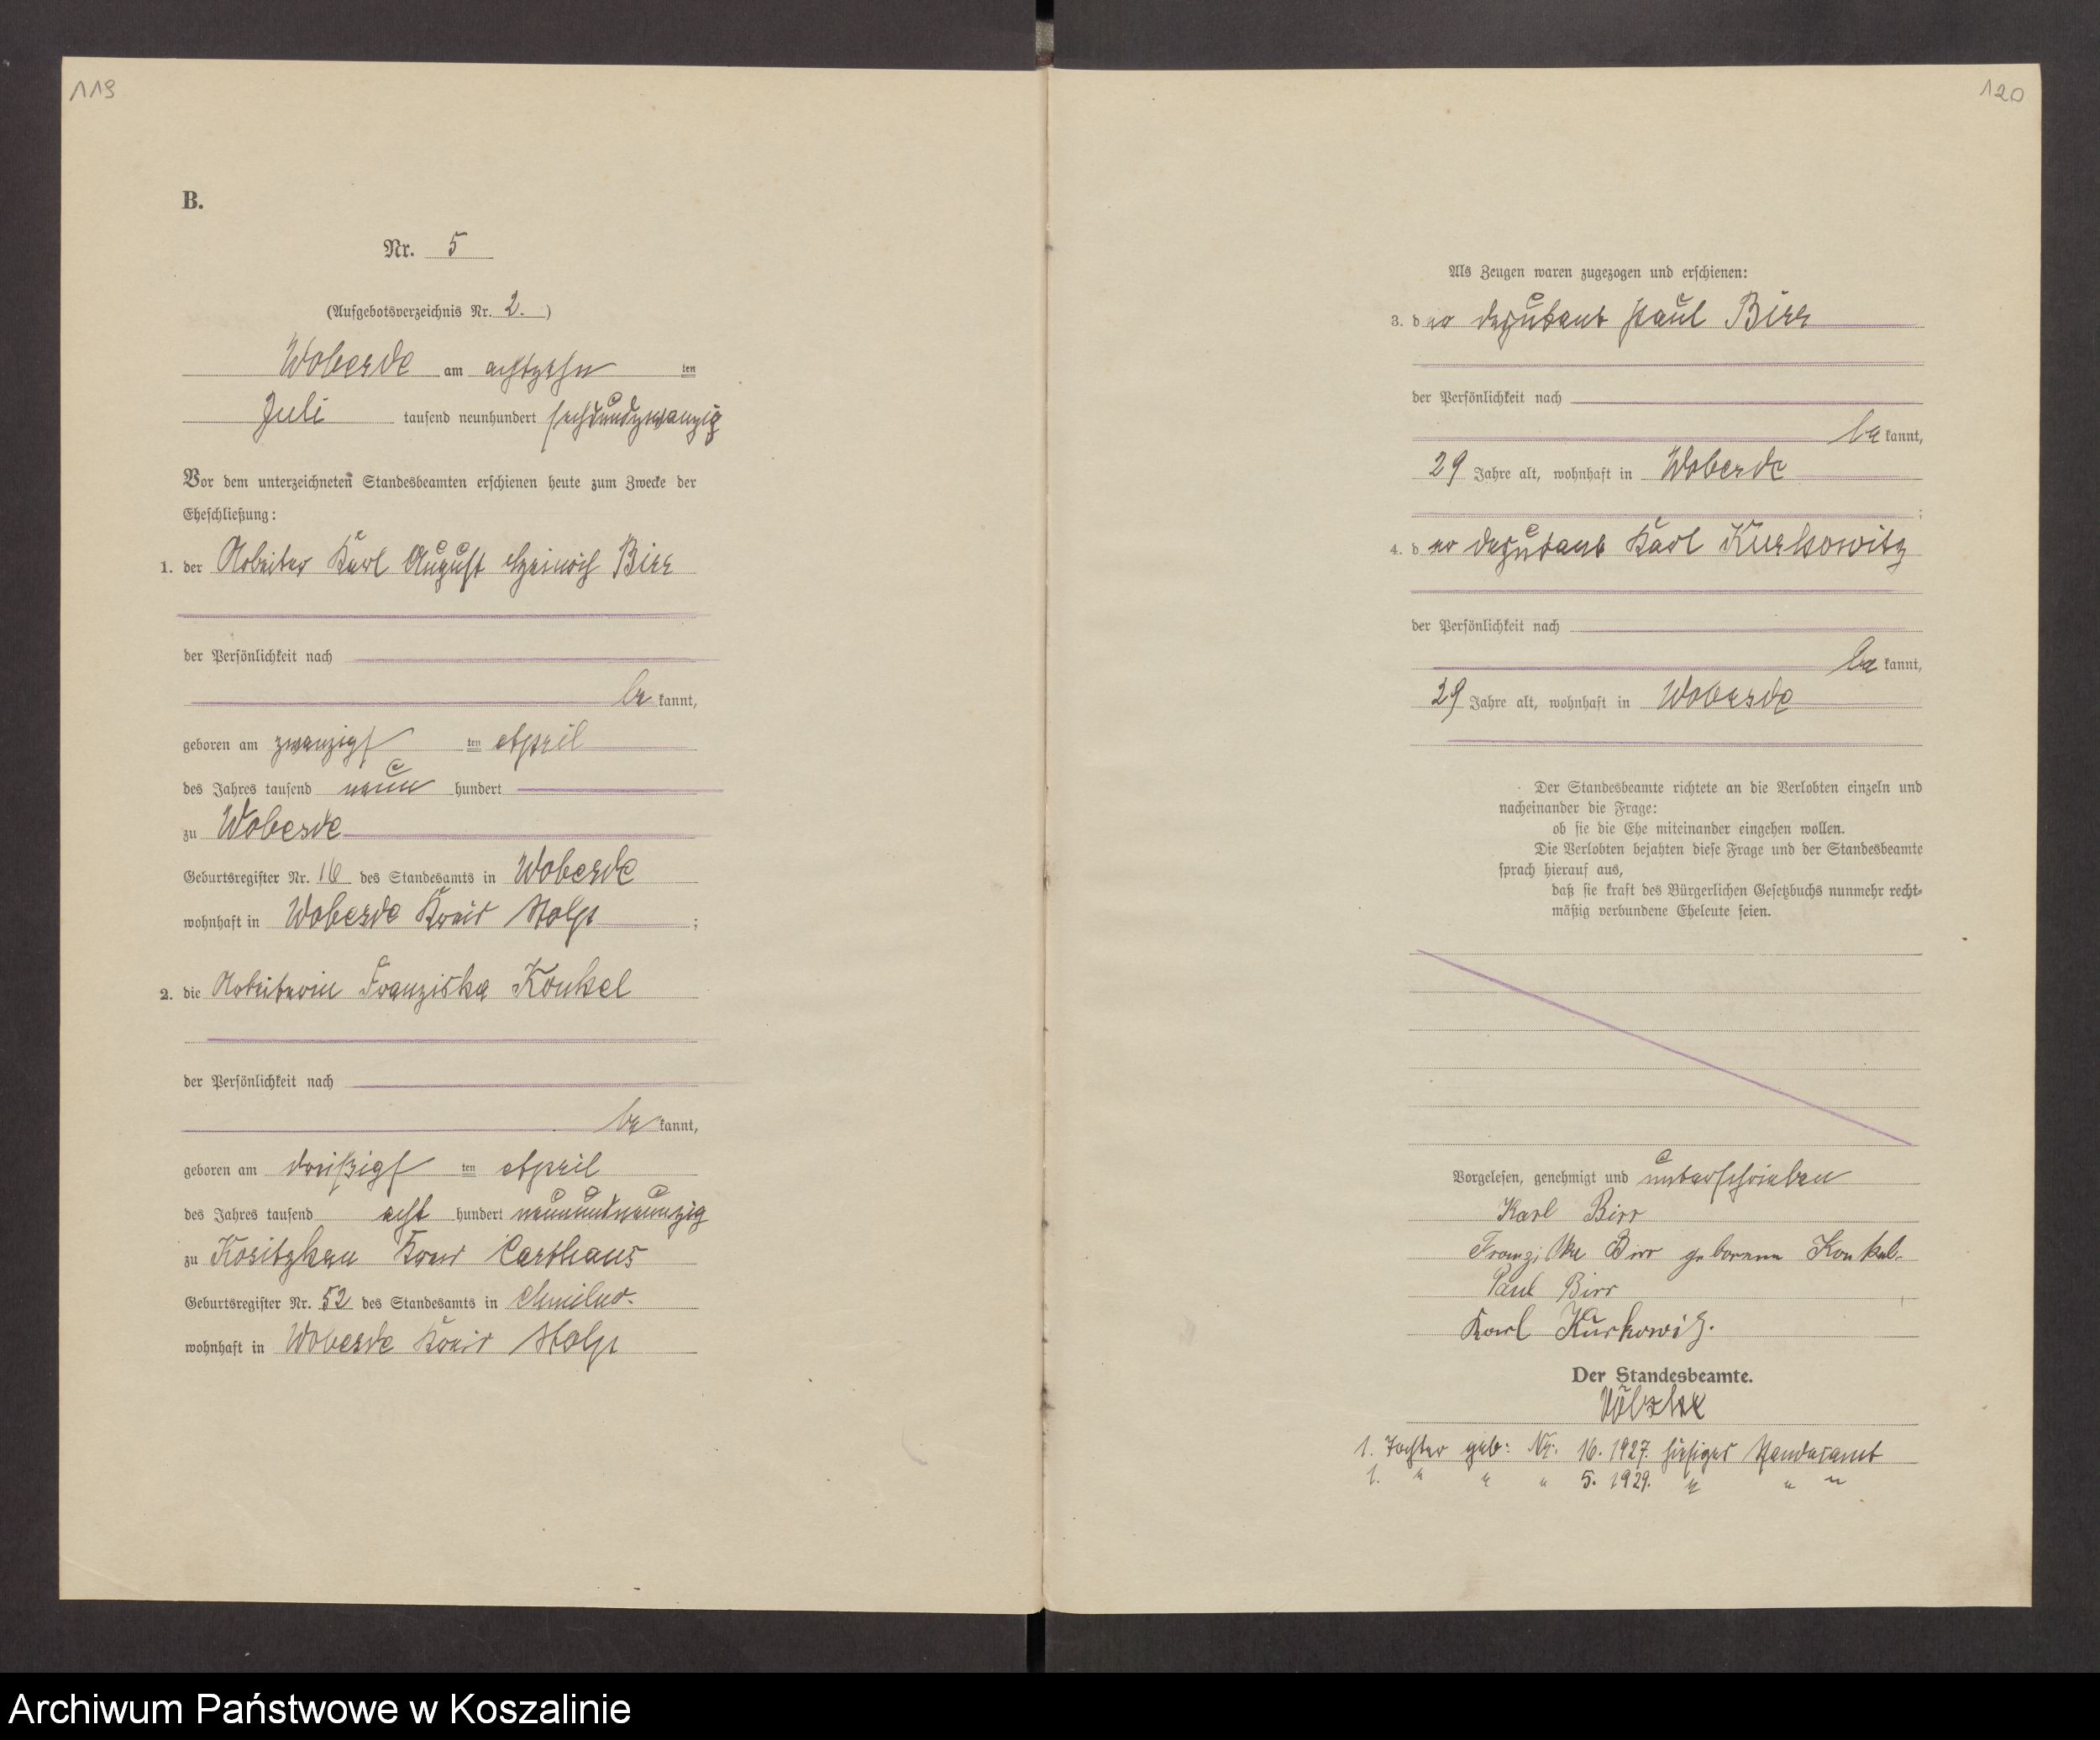 119
B.
Nr. 5
(Aufgebotsverzeichnis Nr. 2.)
Woberde am achtzehn ten
Juli tausend neunhundert sechsundzwanzig
Vor dem unterzeichneten Standesbeamten erschienen heute zum Zwecke der
Eheschließung:
1. der Arbeiter Karl August Heinrich Birr
der Persönlichkeit nach
be kannt,
geboren am zwanzigs ten April
des Jahres tausend neun hundert
zu Woberde
Geburtsregister Nr. 16 des Standesamts in Woberde
wohnhaft in Woberde Kreis Stolp ;
2. die Arbeiterin Franziska Konkel
der Persönlichkeit nach
be kannt,
geboren am dreißigs ten April
des Jahres tausend acht hundert neunundneunzig
zu Kositzkau Kreis Carthaus
Geburtsregister Nr. 52 des Standesamts in Chmilno.
wohnhaft in Woberde Kreis Stolp
120
Als Zeugen waren zugezogen und erschienen:
3. der Deputant Paul Birr
der Persönlichkeit nach
be kannt,
29 Jahre alt, wohnhaft in Woberde
;
4. der Deputant Karl Kurkowitz
der Persönlichkeit nach
be kannt,
29 Jahre alt, wohnhaft in Woberde
Der Standesbeamte richtete an die Verlobten einzeln und
nacheinander die Frage:
ob sie die Ehe miteinander eingehen wollen.
Die Verlobten bejahten diese Frage und der Standesbeamte
sprach hierauf aus,
daß sie kraft des Bürgerlichen Gesetzbuchs nunmehr recht-
mäßig verbundene Eheleute seien.
Vorgelesen, genehmigt und unterschrieben
Karl Birr
Franziska Birr geborene Konkel.
Paul Birr
Karl Kurkowitz.
Der Standesbeamte.
Völzke
1. Tochter geb: Nr. 16. 1927. hiesiges Standesamt
1. " " " 5. 1929. " " "
Archiwum Państwowe w Koszalinie